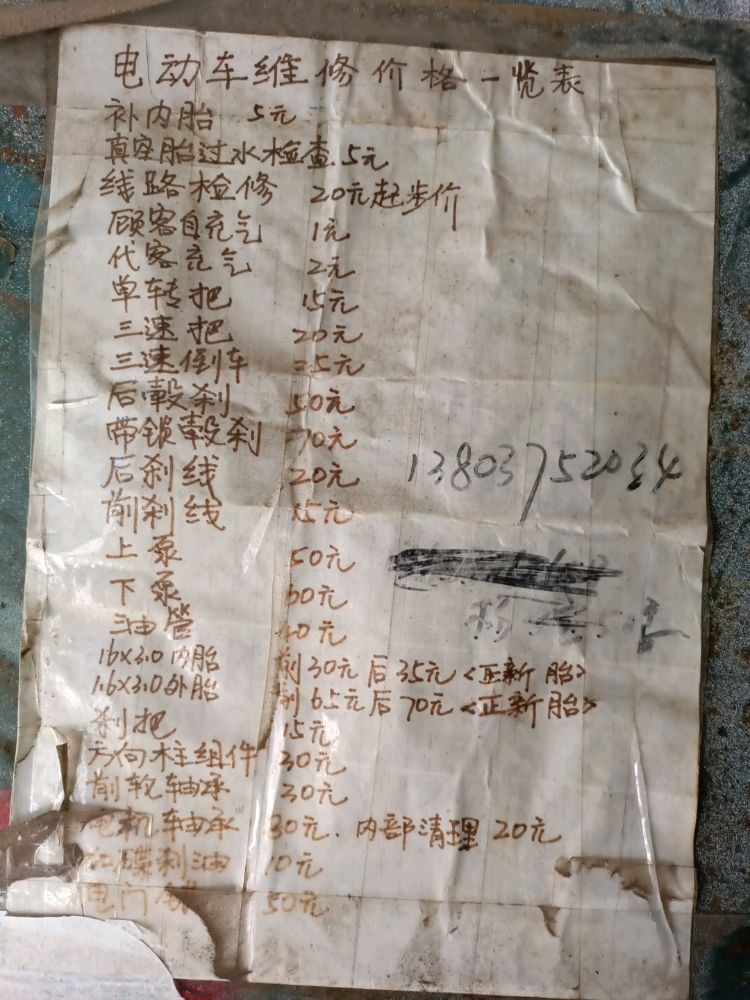 电动车维修价格一览表
补内胎 5元
真空胎过水检查 5元
线路检修 20元起步价
顾客自充气 1元
代客充气 2元
单转把 15元
三速把 20元
三速倒车 25元
后毂刹 50元
带锁毂刹 70元
后刹线 20元
13803752034
前刹线 15元
上泵 50元
下泵 60元
油管 40元
16×3.0内胎 前30元 后35元<正新胎>
16×3.0外胎 前65元 后70元<正新胎>
刹把 15元
方向柱组件 30元
前轮轴承 30元
电机轴承 30元.内部清理20元
碟刹油 10元
电门 50元